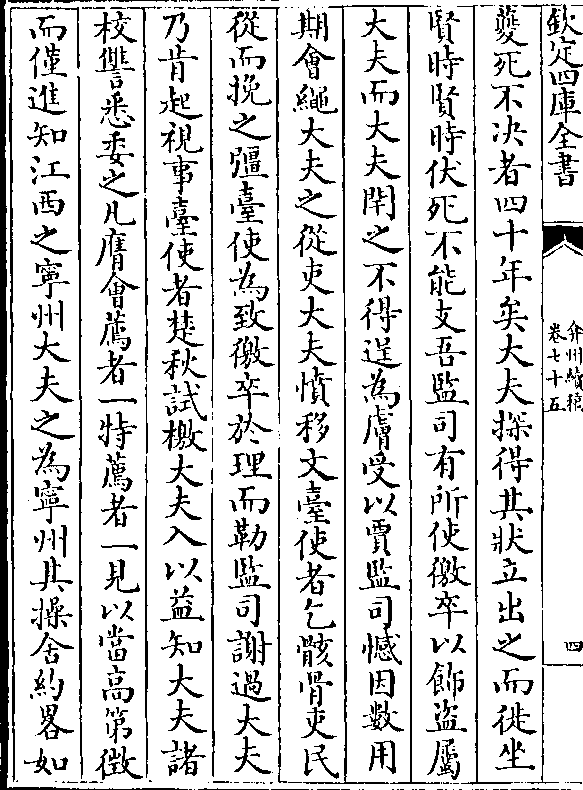 欽定四庫全書
弇州續稿
卷七十五
四
夔死不決者四十年矣大夫探得其狀立出之而徙坐
賢時賢時伏死不能支吾監司有所使徼卒以飾盜屬
大夫而大夫閉之不得逞為膚受以賈監司憾因數用
期會繩大夫之從吏大夫憤移文臺使者乞骸骨吏民
從而挽之彊臺使為致徼卒於理而勒監司謝過大夫
乃肯起視事臺使者楚秋試檄大夫入以益知大夫諸
校讐悉委之凡膺會薦者一特薦者一見以當高第徵
而僅進知江西之寧州大夫之為寧州其操舍約畧如